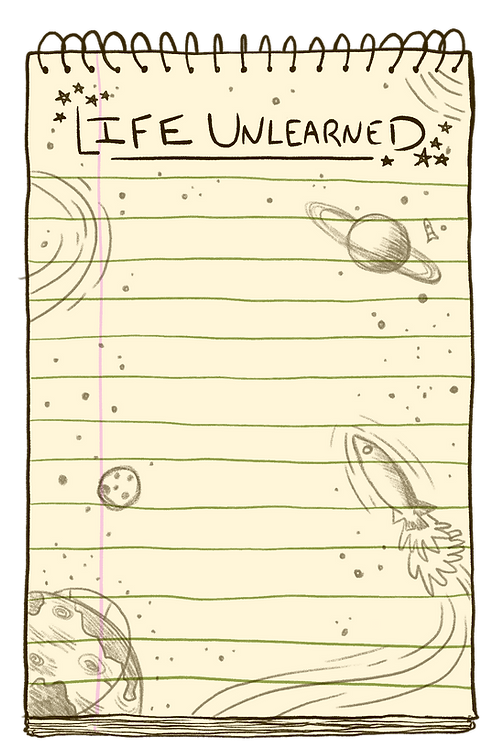 LIFE UNLEARNED